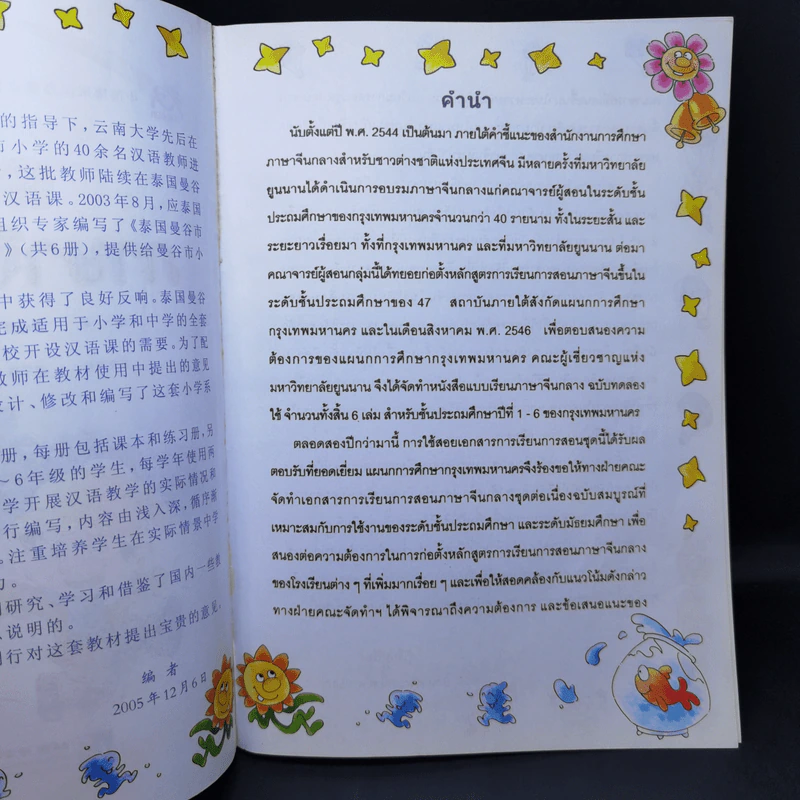 的指导下，云南大学先后在
市小学的40余名汉语教师进
，这批教师陆续在泰国曼谷
汉语课。2003年8月，应泰国
组织专家编写了《泰国曼谷市
》（共6册），提供给曼谷市小
中获得了良好反响。泰国曼谷
完成适用于小学和中学的全套
校开设汉语课的需要。为了配
教师在教材使用中提出的意见
设计、修改和编写了这套小学系
册，每册包括课本和练习册，另
～6年级的学生，每学年使用两
学开展汉语教学的实际情况和
行编写，内容由浅入深，循序渐
。注重培养学生在实际情景中学
力。
研究、学习和借鉴了国内一些教
说明的。
同行对这套教材提出宝贵的意见，
编 者
2005年12月6日
คำนำ
นับตั้งแต่ปี พ.ศ. 2544 เป็นต้นมา ภายใต้คำชี้แนะของสำนักงานการศึกษา
ภาษาจีนกลางสำหรับชาวต่างชาติแห่งประเทศจีน มีหลายครั้งที่มหาวิทยาลัย
ยูนนานได้ดำเนินการอบรมภาษาจีนกลางแก่คณาจารย์ผู้สอนในระดับชั้น
ประถมศึกษาของกรุงเทพมหานครจำนวนกว่า 40 รายนาม ทั้งในระยะสั้น และ
ระยะยาวเรื่อยมา ทั้งที่กรุงเทพมหานคร และที่มหาวิทยาลัยยูนนาน ต่อมา
คณาจารย์ผู้สอนกลุ่มนี้ได้ทยอยก่อตั้งหลักสูตรการเรียนการสอนภาษาจีนขึ้นใน
ระดับชั้นประถมศึกษาของ 47 สถาบันภายใต้สังกัดแผนกการศึกษา
กรุงเทพมหานคร และในเดือนสิงหาคม พ.ศ. 2546 เพื่อตอบสนองความ
ต้องการของแผนกการศึกษากรุงเทพมหานคร คณะผู้เชี่ยวชาญแห่ง
มหาวิทยาลัยยูนนาน จึงได้จัดทำหนังสือแบบเรียนภาษาจีนกลาง ฉบับทดลอง
ใช้ จำนวนทั้งสิ้น 6 เล่ม สำหรับชั้นประถมศึกษาปีที่ 1 - 6 ของกรุงเทพมหานคร
ตลอดสองปีกว่ามานี้ การใช้สอยเอกสารการเรียนการสอนชุดนี้ได้รับผล
ตอบรับที่ยอดเยี่ยม แผนกการศึกษากรุงเทพมหานครจึงร้องขอให้ทางฝ่ายคณะ
จัดทำเอกสารการเรียนการสอนภาษาจีนกลางชุดต่อเนื่องฉบับสมบูรณ์ที่
เหมาะสมกับการใช้งานของระดับชั้นประถมศึกษา และระดับมัธยมศึกษา เพื่อ
สนองต่อความต้องการในการก่อตั้งหลักสูตรการเรียนการสอนภาษาจีนกลาง
ของโรงเรียนต่าง ๆ ที่เพิ่มมากเรื่อย ๆ และเพื่อให้สอดคล้องกับแนวโน้มดังกล่าว
ทางฝ่ายคณะจัดทำฯ ได้พิจารณาถึงความต้องการ และข้อเสนอแนะของ